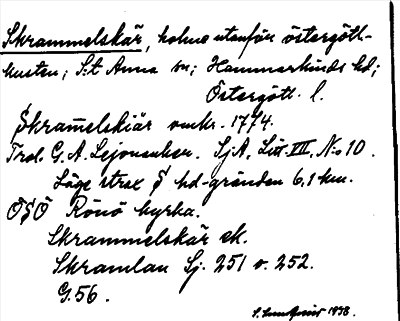 Skrammelskär, holme utanför östergöt-
kusten; S:t Anna sn; Hammarkinds hd;
Östergötl. l.
Skram̅elskiär omkr. 1774.
Trol. G. A. Lejonanker. SjA, Litt. VII, No 10.
Läge strax S hd-gränden 6,1 km.
ÖSÖ Rönö kyrka.
Skrammelskär ek.
Skramlan Sj. 251 o. 252.
G. 56.
1938.